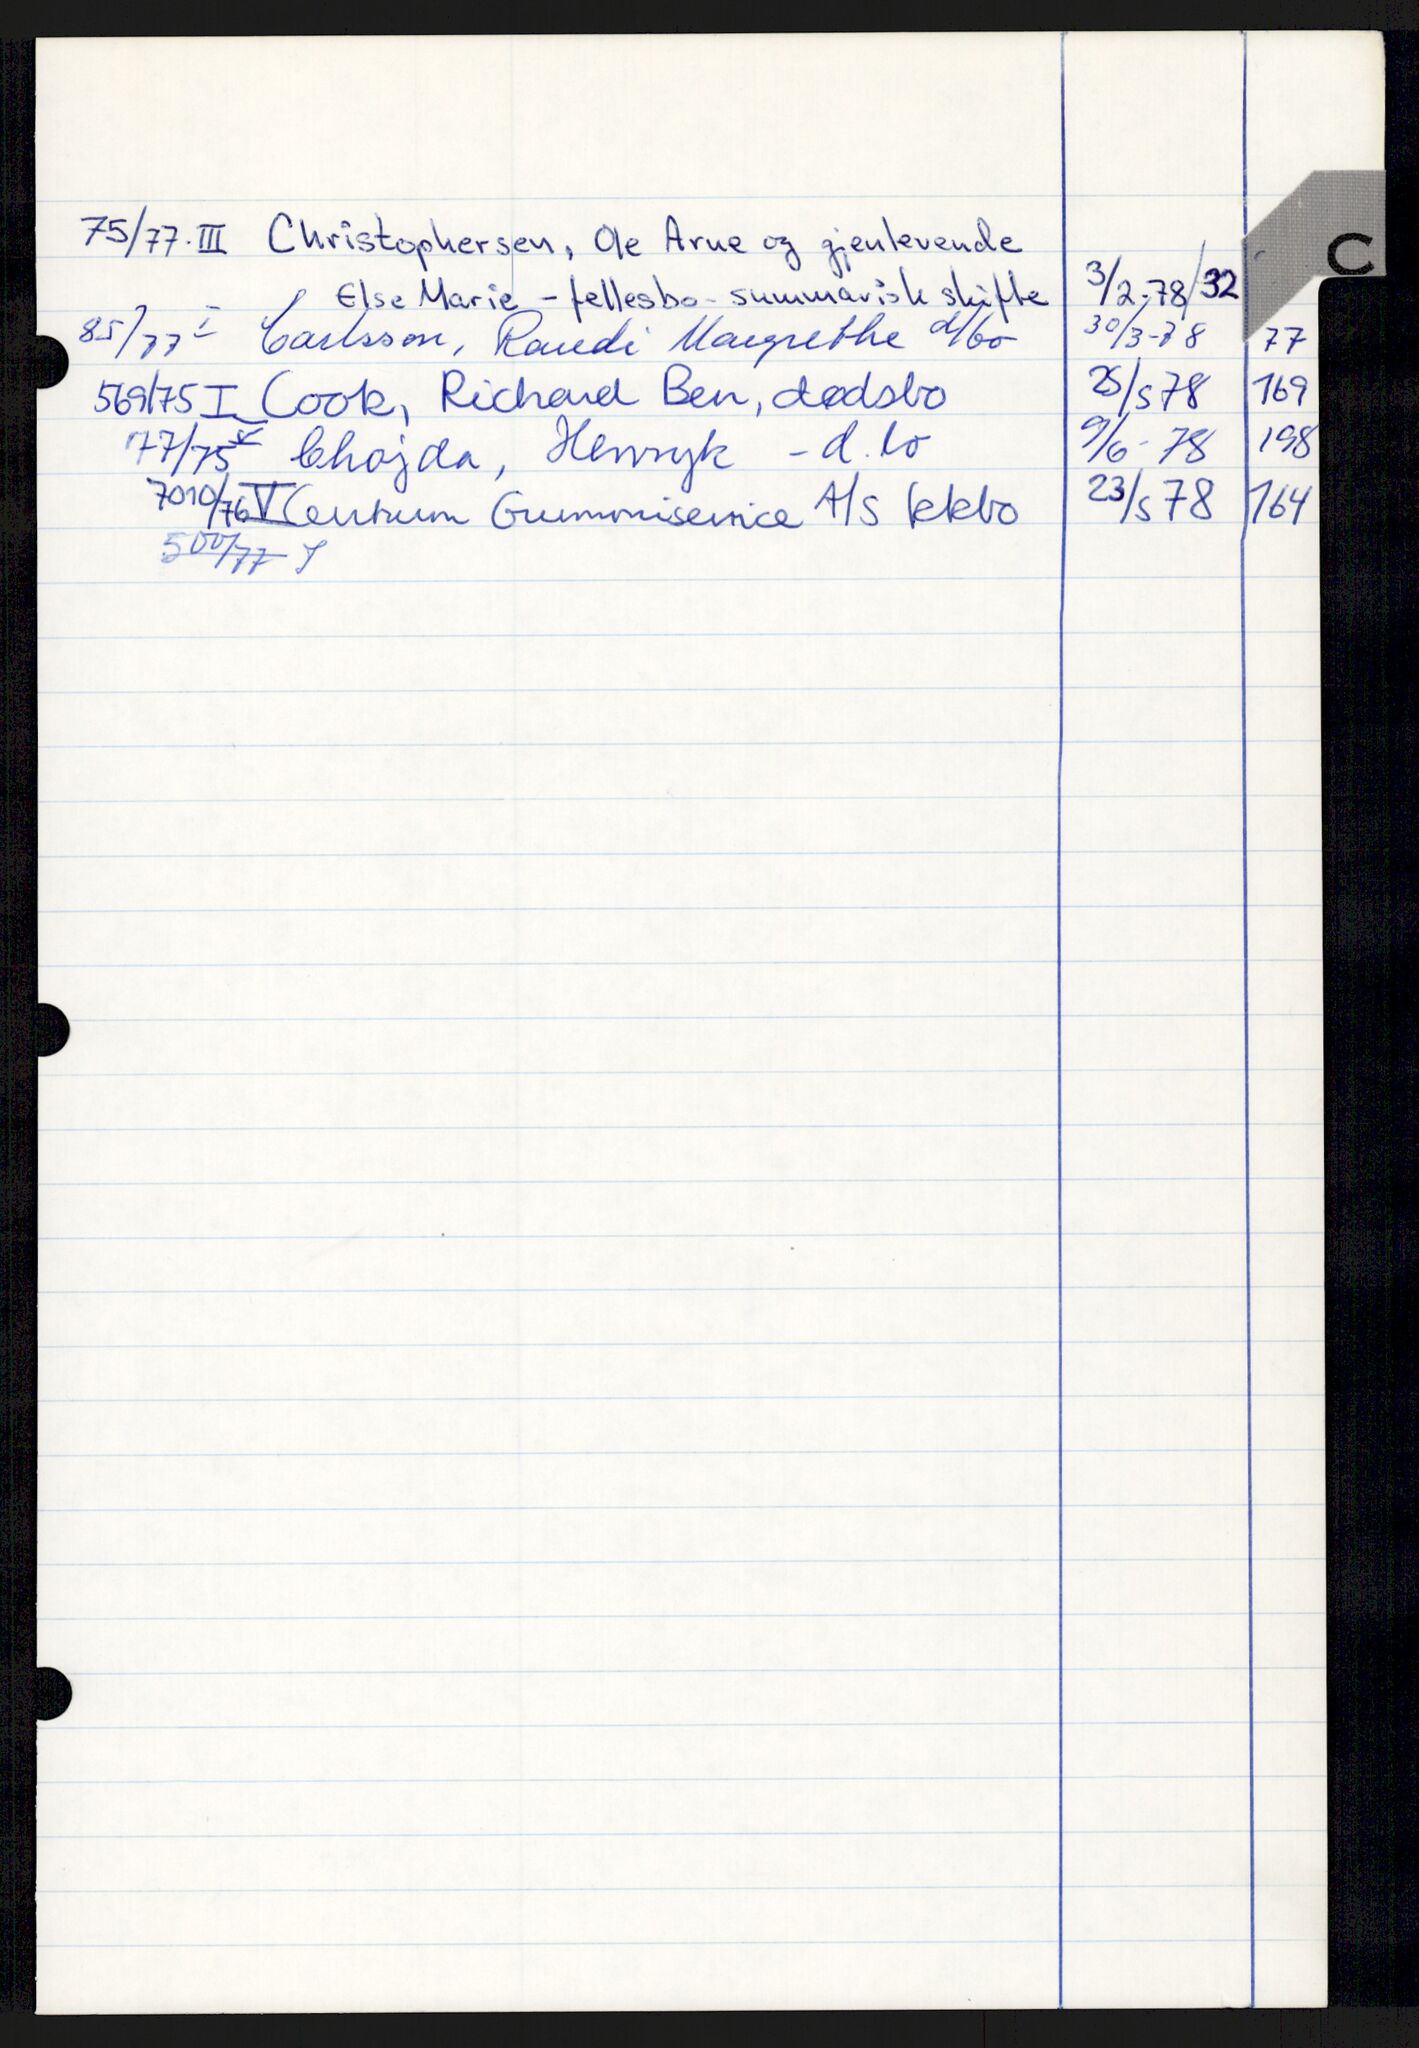 C
75/77. III Christophersen, Ole Arne og gjenlevende
Else Marie - fellesbo - summarisk skifte 3/2-78/32
85/77 I Carlsson, Randi Margrethe d/bo 30/3-78 77
569/75 I Cook, Richard Ben, dødsbo 25/5 78 169
77/75 Chojda, Henryk - d.bo 9/6-78 198
7010/76 V Centrum Gummiservice A/S kkbo 23/5 78 164
500/77